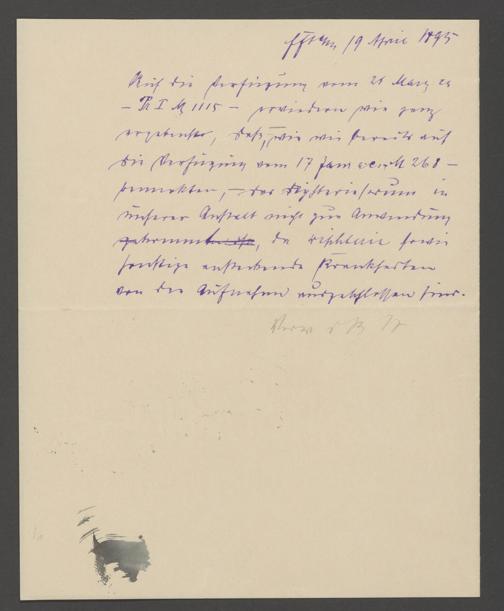 19 April 1895
Auf die Verfügung vom 21 März ca
– Pr I № 1115 – erwiedern wir ganz
ergebenst, daß, wie wir bereits auf
die Verfügung vom 17 Jan 268 –
bemerkten, – das Diphterieserum in
unserer Anstalt nicht zur Anwendung
gekommen, da Diphterie sowie
sonstige ansteckende Krankheiten
von der Aufnahme ausgeschlossen sind.